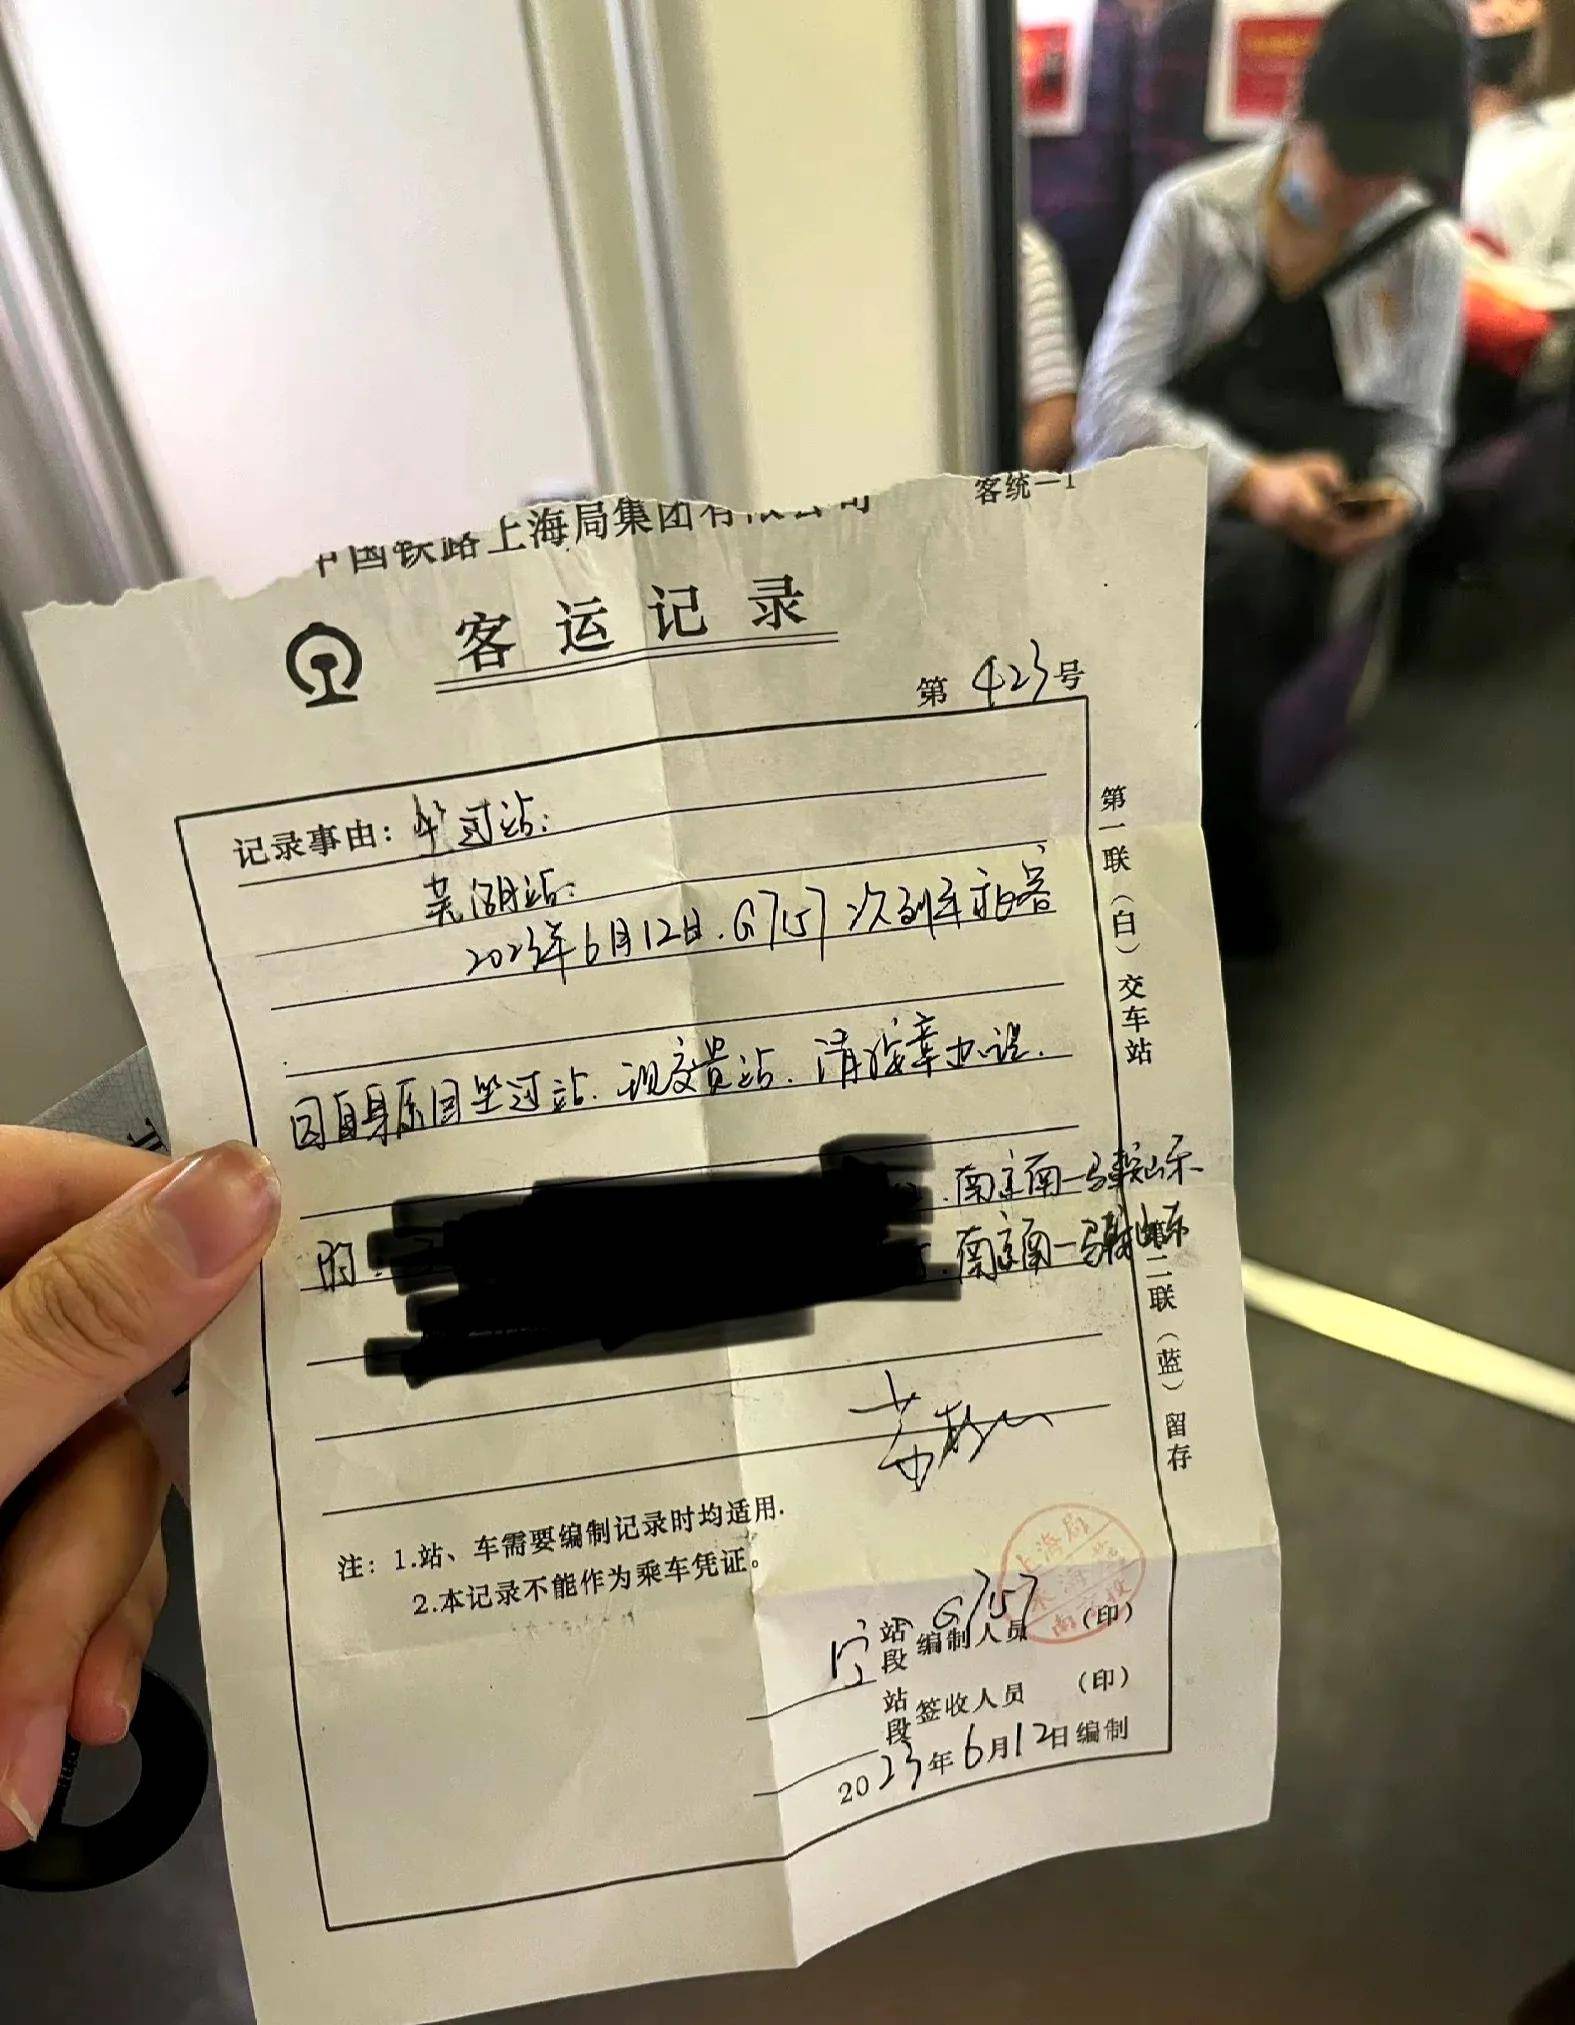 中国铁路上海局集团有限公司
客统一1
客运记录
第 423 号
记录事由：坐过站：
芜湖站：
2023年6月12日.G7157次列车旅客
因自身原因坐过站.现交贵站.请按章办理.
南京南—马鞍山东
附：
南京南—马鞍山东
注：1.站、车需要编制记录时均适用.
2.本记录不能作为乘车凭证。
G757
站段 编制人员 （印）
站段 签收人员 （印）
2023年6月12日编制
第一联（白）交车站
第二联（蓝）留存
上海局